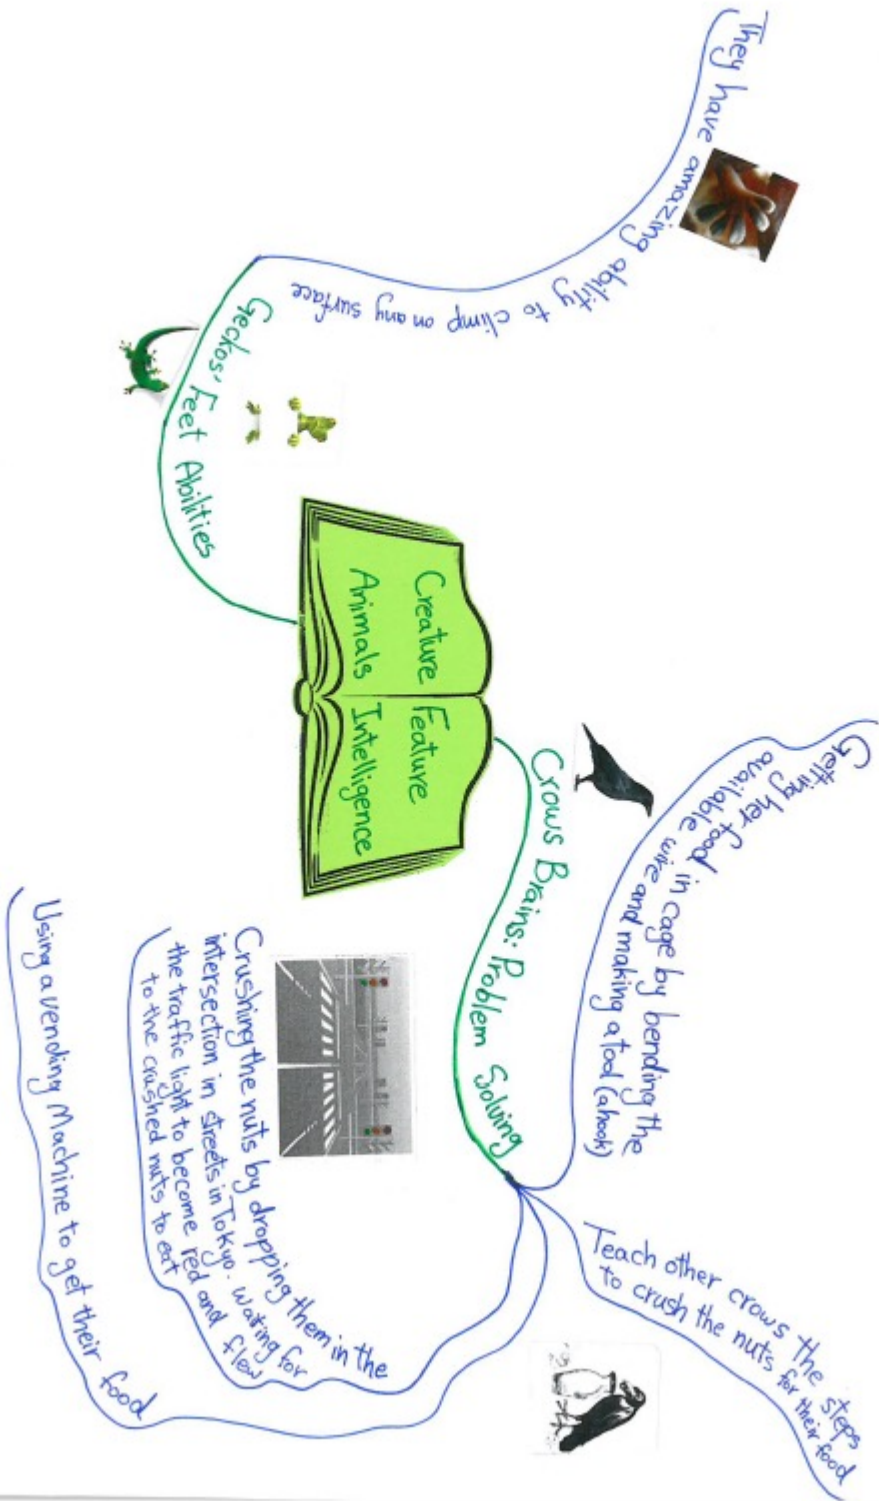 Creature Feature
Animals Intelligence
Geckos' Feet Abilities
They have amazing ability to climp on any surface
Crows Brains: Problem Solving
Getting her food in cage by bending the
available wire and making a tool (a hook)
Teach other crows the steps
to crush the nuts for their food
Crushing the nuts by dropping them in the
intersection in streets in Tokyo. waiting for
the traffic light to become red and flew
to the crushed nuts to eat
Using a vending Machine to get their food